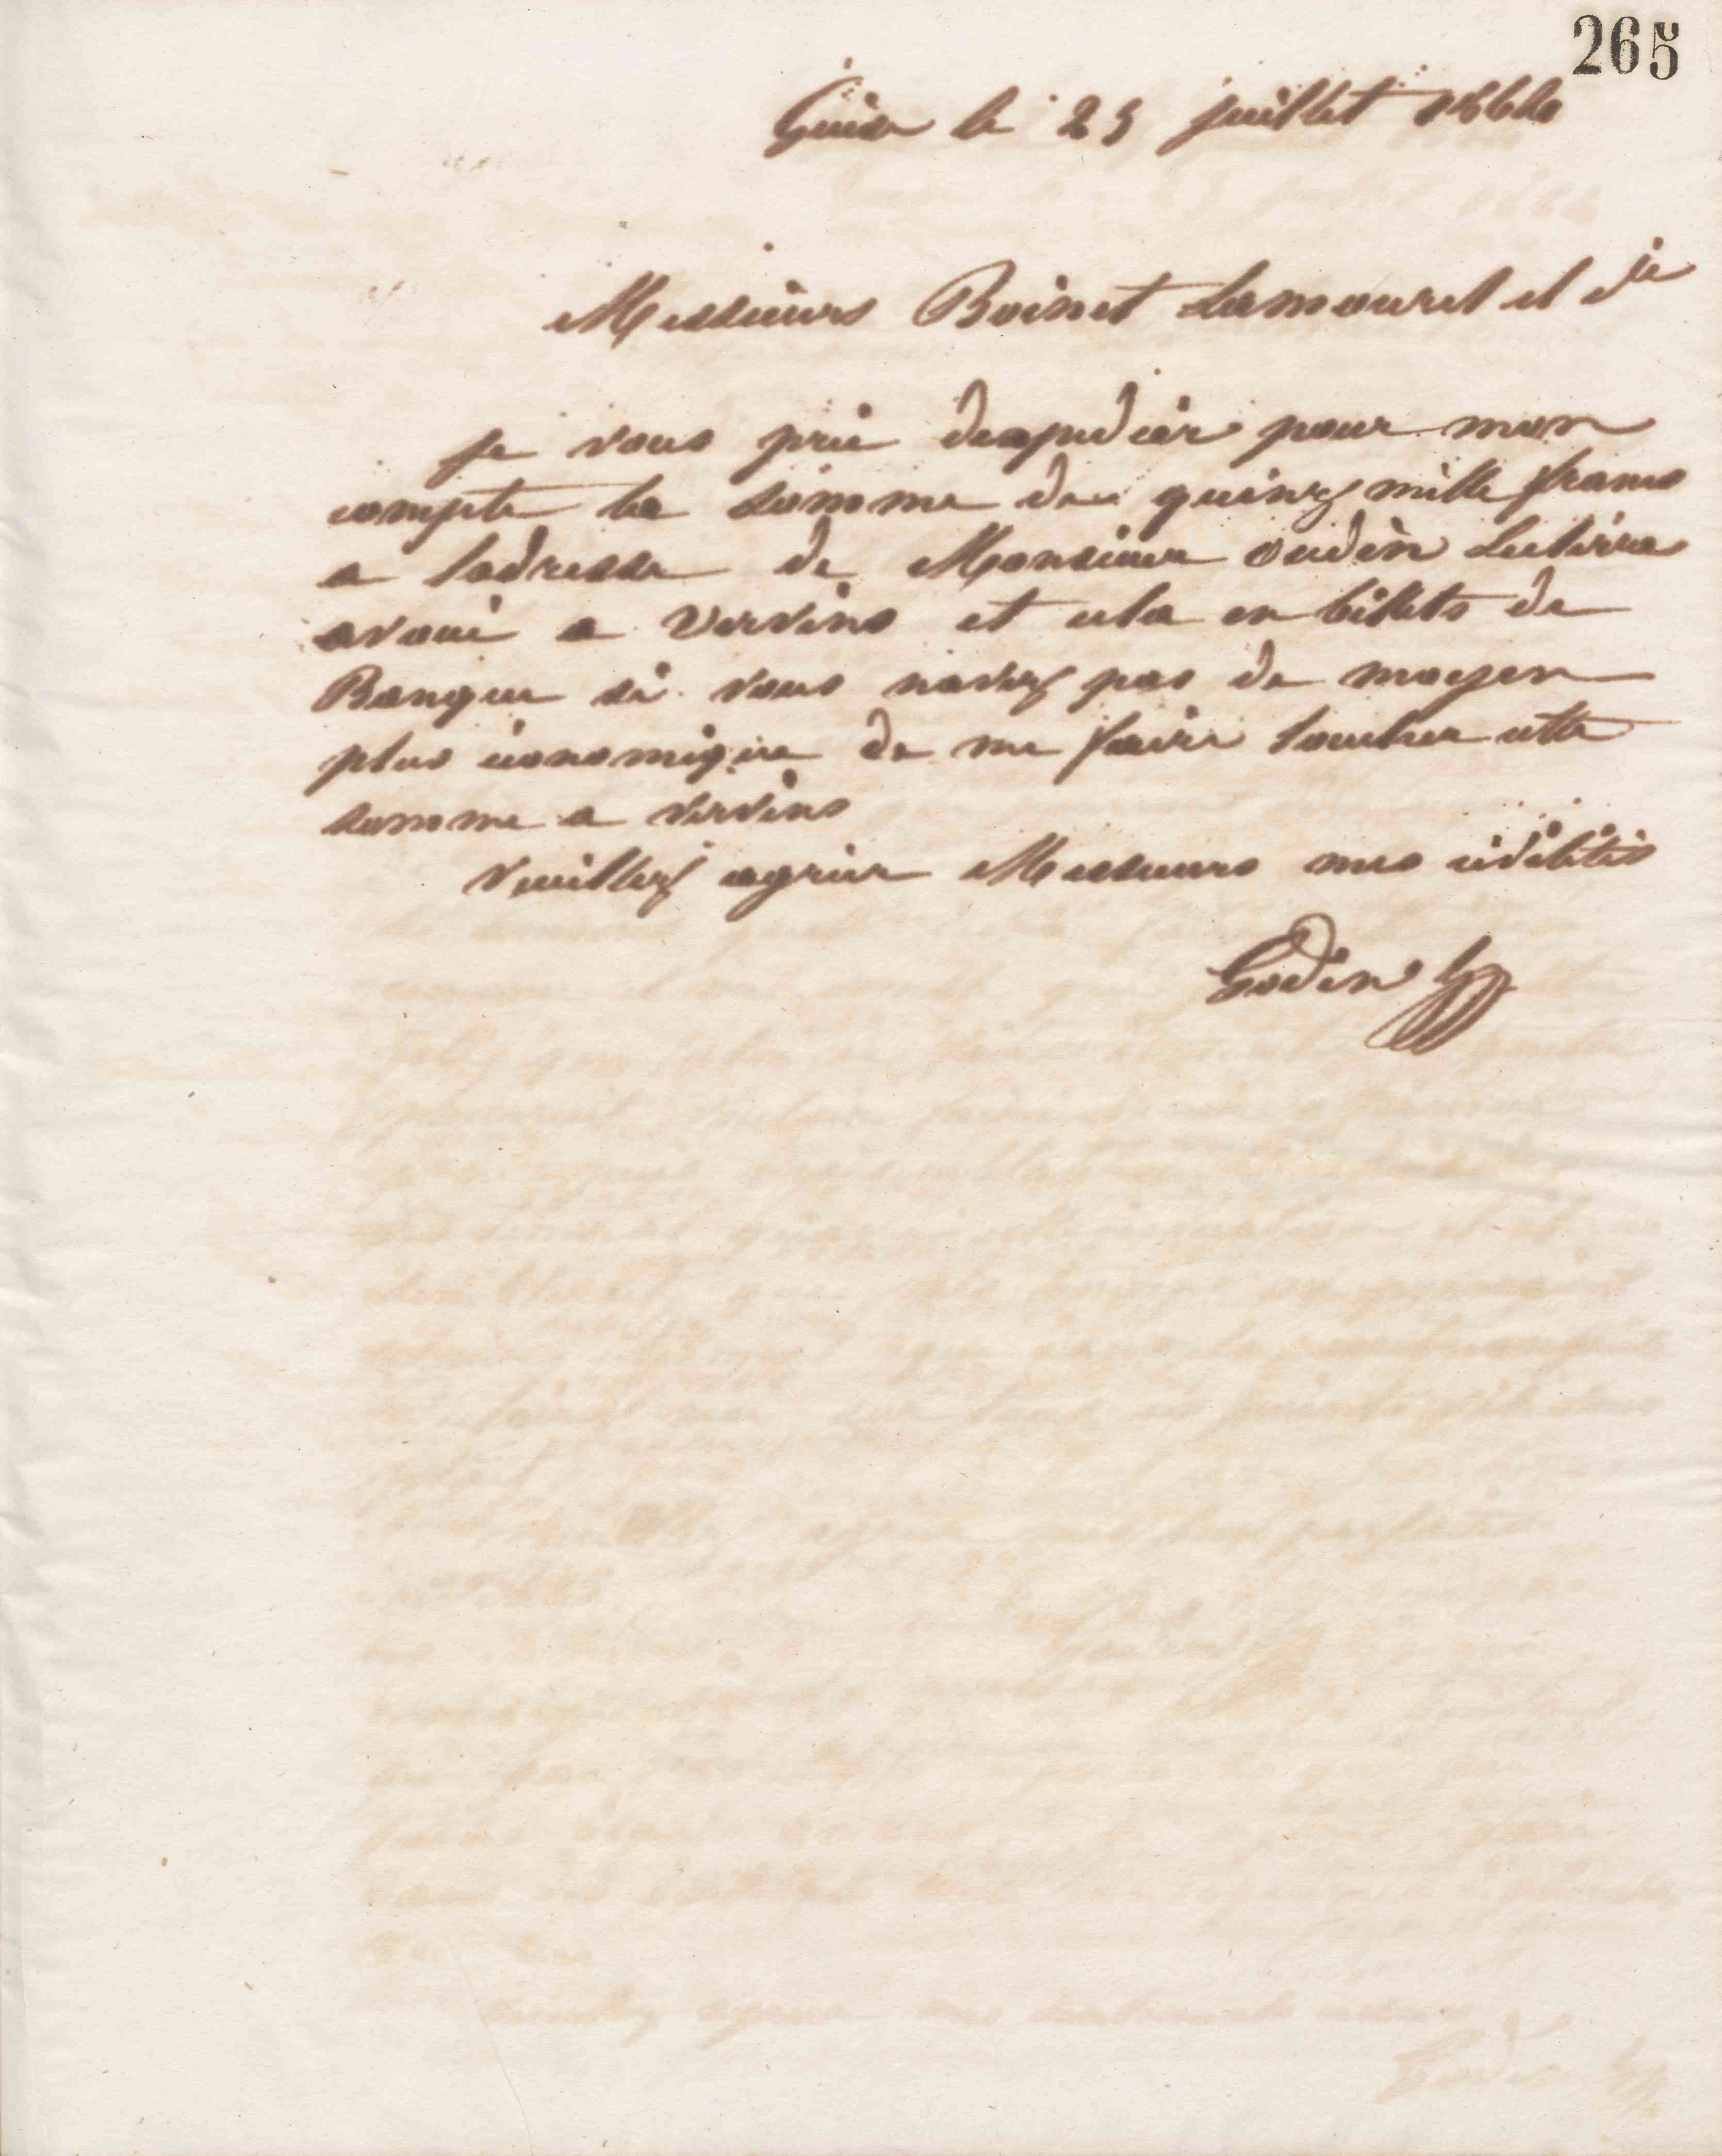 265
Guise le 23 juillet 1864
Messieurs Boinet Lamouret et Cie
je vous prie dexpedier pour mon
compte la somme de quinze mille francs
a ladresse de Monsieur oudin Leclère
avoué a Vervins et cela en billets de
Banque si vous navez pas de moyen
plus économique de me faire toucher cette
somme a Vervins
Veuillez agréer Messieurs mes civilités
Godin